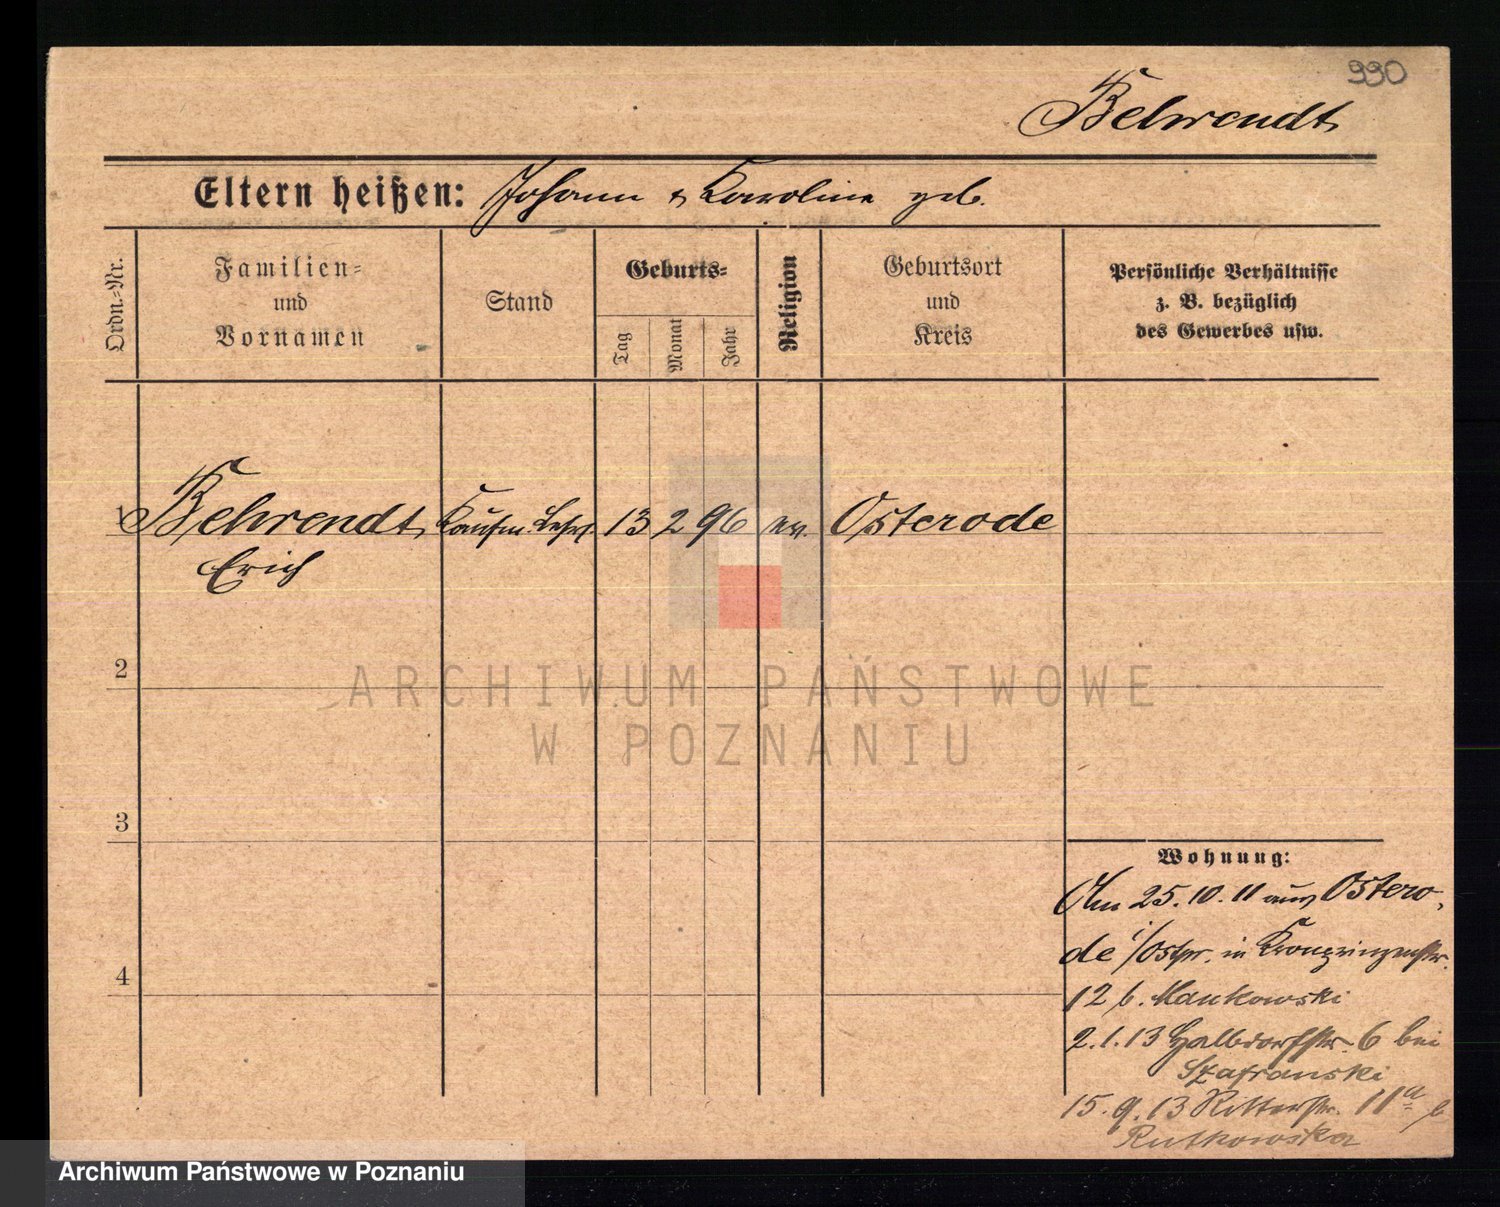 990
Behrendt
Eltern heißen: Johann & Karoline geb.
Ordn.-Nr.
Familien-
und
Vornamen
Stand
Geburts-
Tag
Monat
Jahr
Religion
Geburtsort
und
Kreis
Persönliche Verhältnisse
z. B. bezüglich
des Gewerbes usw.
1 Behrendt Kaufm. Lehrl. 13 2 96 ev. Osterode
Erich
2
ARCHIWUM PAŃSTWOWE
W POZNANIU
3
4
Wohnung:
Am 25.10.11 aus Ostero-
de i/Ostpr. in Kronprinzenstr.
12 b. Mankowski
2.1.13 Halbdorfstr. 6 bei
Szafranski
15.9.13 Ritterstr. 11a b
Rutkowska
Archiwum Państwowe w Poznaniu